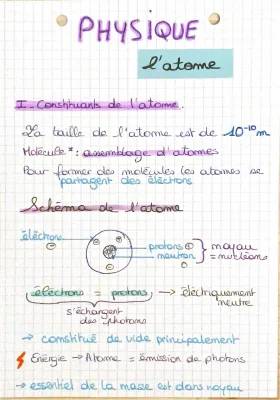 PHYSIQUE
l'atome
I - Constituants de l'atome.
La taille de l'atome est de 10⁻¹⁰ m
Molécule * : assemblage d'atomes
Pour former des molécules les atomes se
partagent des électrons
Schéma de l'atome
électrons
protons ⊕
neutron
noyau
= nucléons
électrons = protons → électriquement
neutre
s'échangent
des photons
→ constitué de vide principalement
Énergie → Atome = émission de photons
→ essentiel de la masse est dans noyau